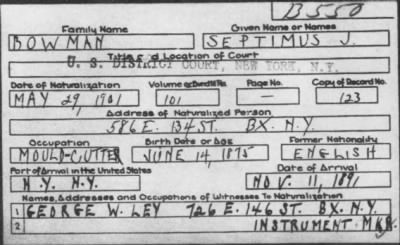 B550
Family Name Given Name or Names
BOWMAN SEPTIMUS J.
Title and Location of Court
U. S. DISTRICT COURT, NEW YORK, N.Y.
Date of Naturalization Volume or Bundle No. Page No. Copy of Record No.
MAY 29, 1901 101 — 123
Address of Naturalized Person
586 E. 134 ST. BX. N.Y.
Occupation Birth Date or Age Former Nationality
MOULD-CUTTER JUNE 14, 1875 ENGLISH
Port of Arrival in the United States Date of Arrival
N.Y. N.Y. NOV. 11, 1891
Names, Addresses and Occupations of Witnesses To Naturalization
1 GEORGE W. LEY 726 E. 146 ST. BX. N.Y.
2 INSTRUMENT MKR.